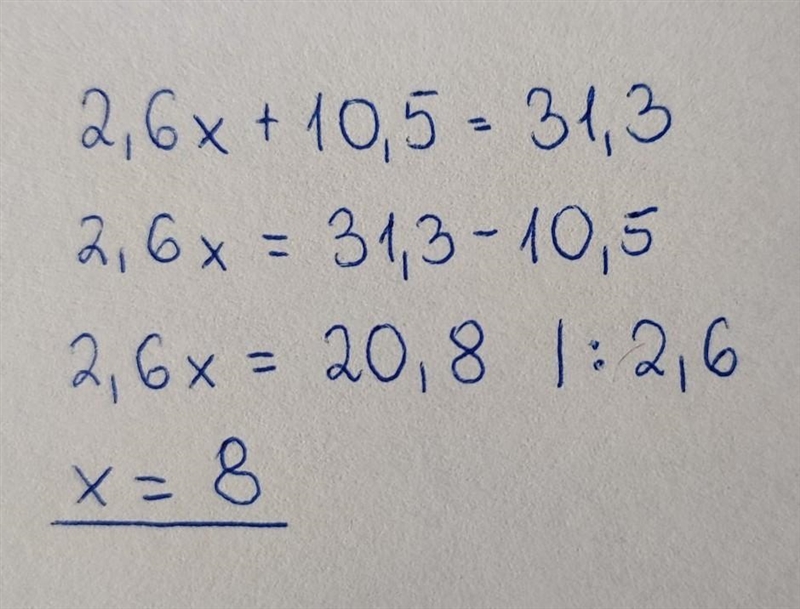 2,6x + 10,5 = 31,3
2,6x = 31,3 - 10,5
2,6x = 20,8 |: 2,6
x = 8